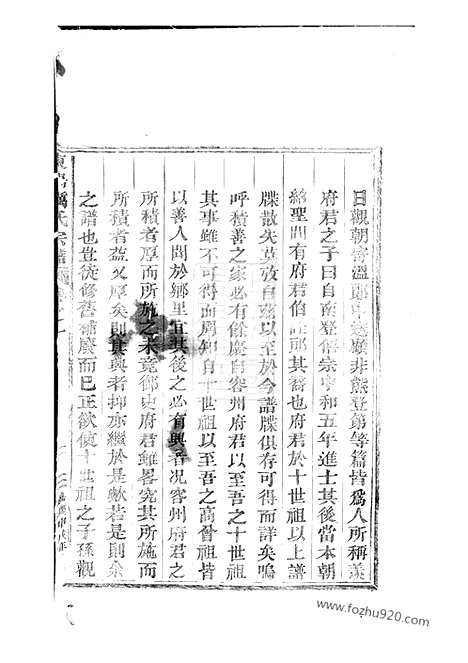 日觀朝寄溫郎中送顧非熊登第等篇皆爲人所稱羨
府君之子曰自南登僖宗中和五年進士其後當本朝
紹聖間有府君伯 都其裔也府君於十世祖以上譜
牒散失莫攷自 以至於今譜牒俱存可得而詳矣嗚
呼積善之家必有餘慶自容州府君以至吾之十世祖
其事雖不可得而周知自十世祖以至吾之高曾祖皆
以善人聞於鄉里宜其後之必有興者况容州府君之
所積者厚而所施之未竟御史府君雖畧究其所施而
所積者益又厚矣則其興者抑亦繼於是歟若是則余
之譜也豈徒修舊補廢而已正欲使十世祖之子孫觀
氏宗譜
www.fozhu920.com